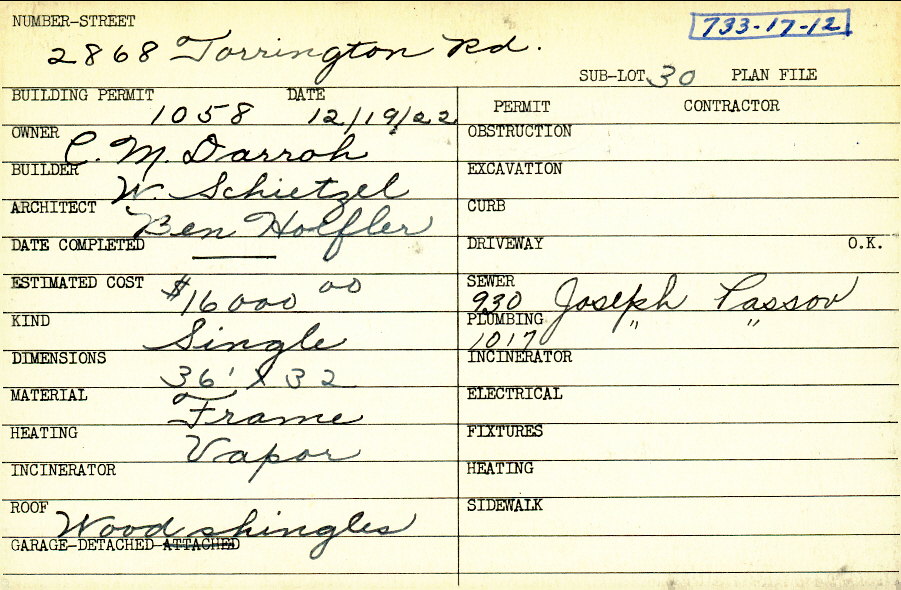 NUMBER-STREET 733-17-12
2868 Torrington Rd.
SUB-LOT 30 PLAN FILE
BUILDING PERMIT 1058 DATE 12/19/22
PERMIT CONTRACTOR
OWNER C. M. Darroh
OBSTRUCTION
BUILDER W. Schietzel
EXCAVATION
ARCHITECT Ben Holfler
CURB
DATE COMPLETED ———
DRIVEWAY O.K.
ESTIMATED COST $16000 00
SEWER 930 Joseph Passov
KIND Single
PLUMBING 1017 " "
DIMENSIONS 36' X 32
INCINERATOR
MATERIAL Frame
ELECTRICAL
HEATING Vapor
FIXTURES
INCINERATOR
HEATING
ROOF Wood shingles
SIDEWALK
GARAGE-DETACHED-ATTACHED